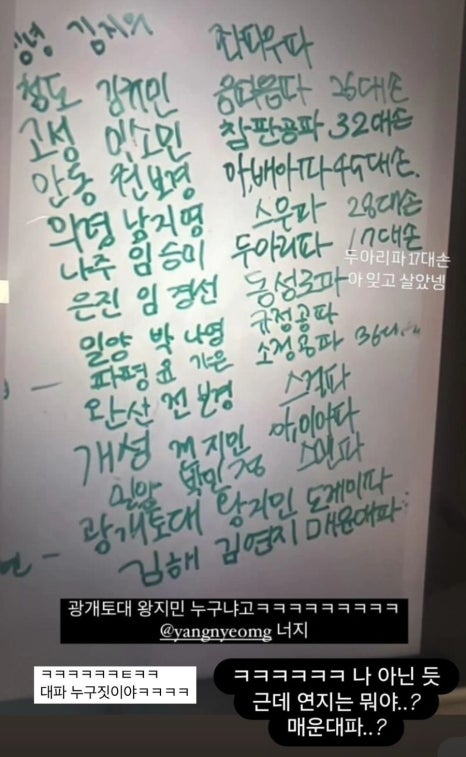 김지의 잔디우파
청도 김규민 웅따웅따 26대손
고성 이소민 참판공파 32대손
안동 권보경 아,배아파 45대손.
의령 남지명 스우파 28대손
나주 임승미 두아리파 17대손
두아리파 17대손
아 잊고 살았넹
은진 임경선 동성로파
밀양 박나영 규정공파
파평 윤가은 소정공파 36대
완산 전보경 스걸파
개성 지민 아,이아파
밀양 박민정 스맨파
광개토대 왕지민 도레미파
김해 김연지 매운대파
광개토대 왕지민 누구냐고ㅋㅋㅋㅋㅋㅋㅋㅋㅋ
@yangnyeomg 너지
ㅋㅋㅋㅋㅋㅋㅌㅋㅋ
대파 누구짓이야ㅋㅋㅋㅋ
ㅋㅋㅋㅋㅋㅋ 나 아닌 듯
근데 연지는 뭐야..?
매운대파..?